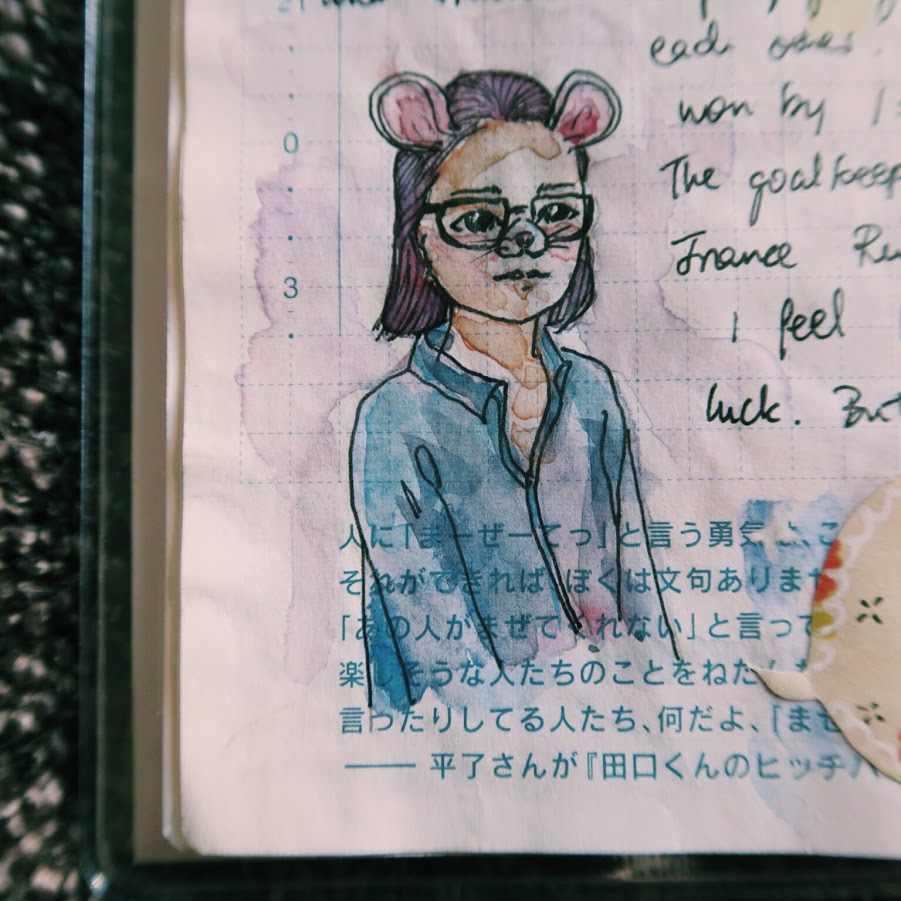 each
won by 1
The goalkeep
0
France Re
3
I feel
luck. But
人に「まーぜーてっ」と言う勇気、こ
それができれば、ぼくは文句ありませ
「あの人がまぜてくれない」と言って
楽しそうな人たちのことをねたんだ
言ったりしてる人たち、何だよ、「まぜ
—— 平了さんが『田口くんのヒッチハ